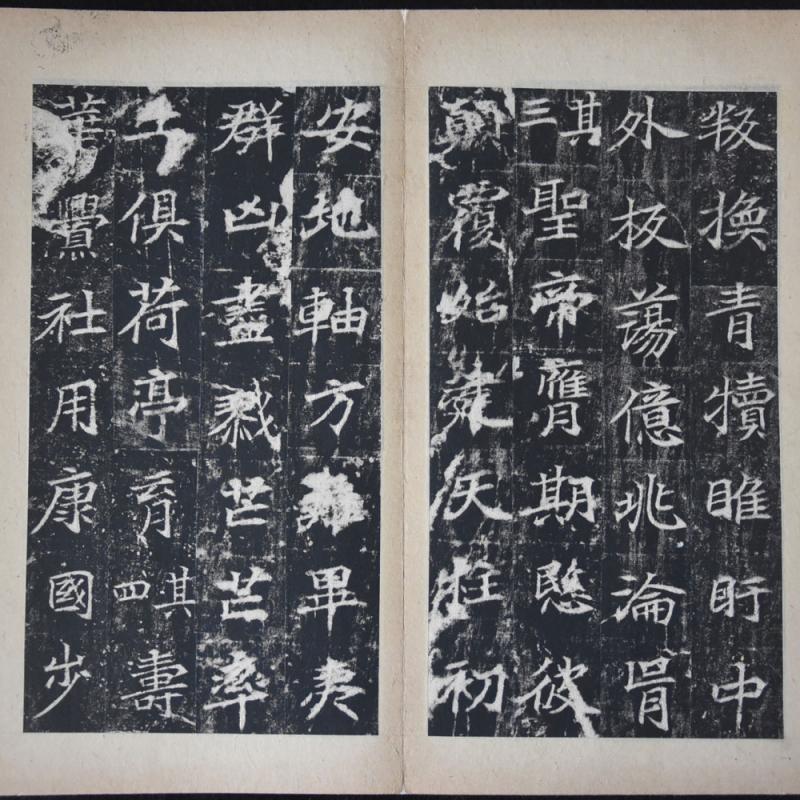 叛換青犢睢盱中
外板蕩億兆淪胥
其三聖帝膺期愍彼
顛覆始天柱初
安地軸方難畢夷
群凶盡戮芒芒率
土俱荷亭育其四壽
華釁社用康國步